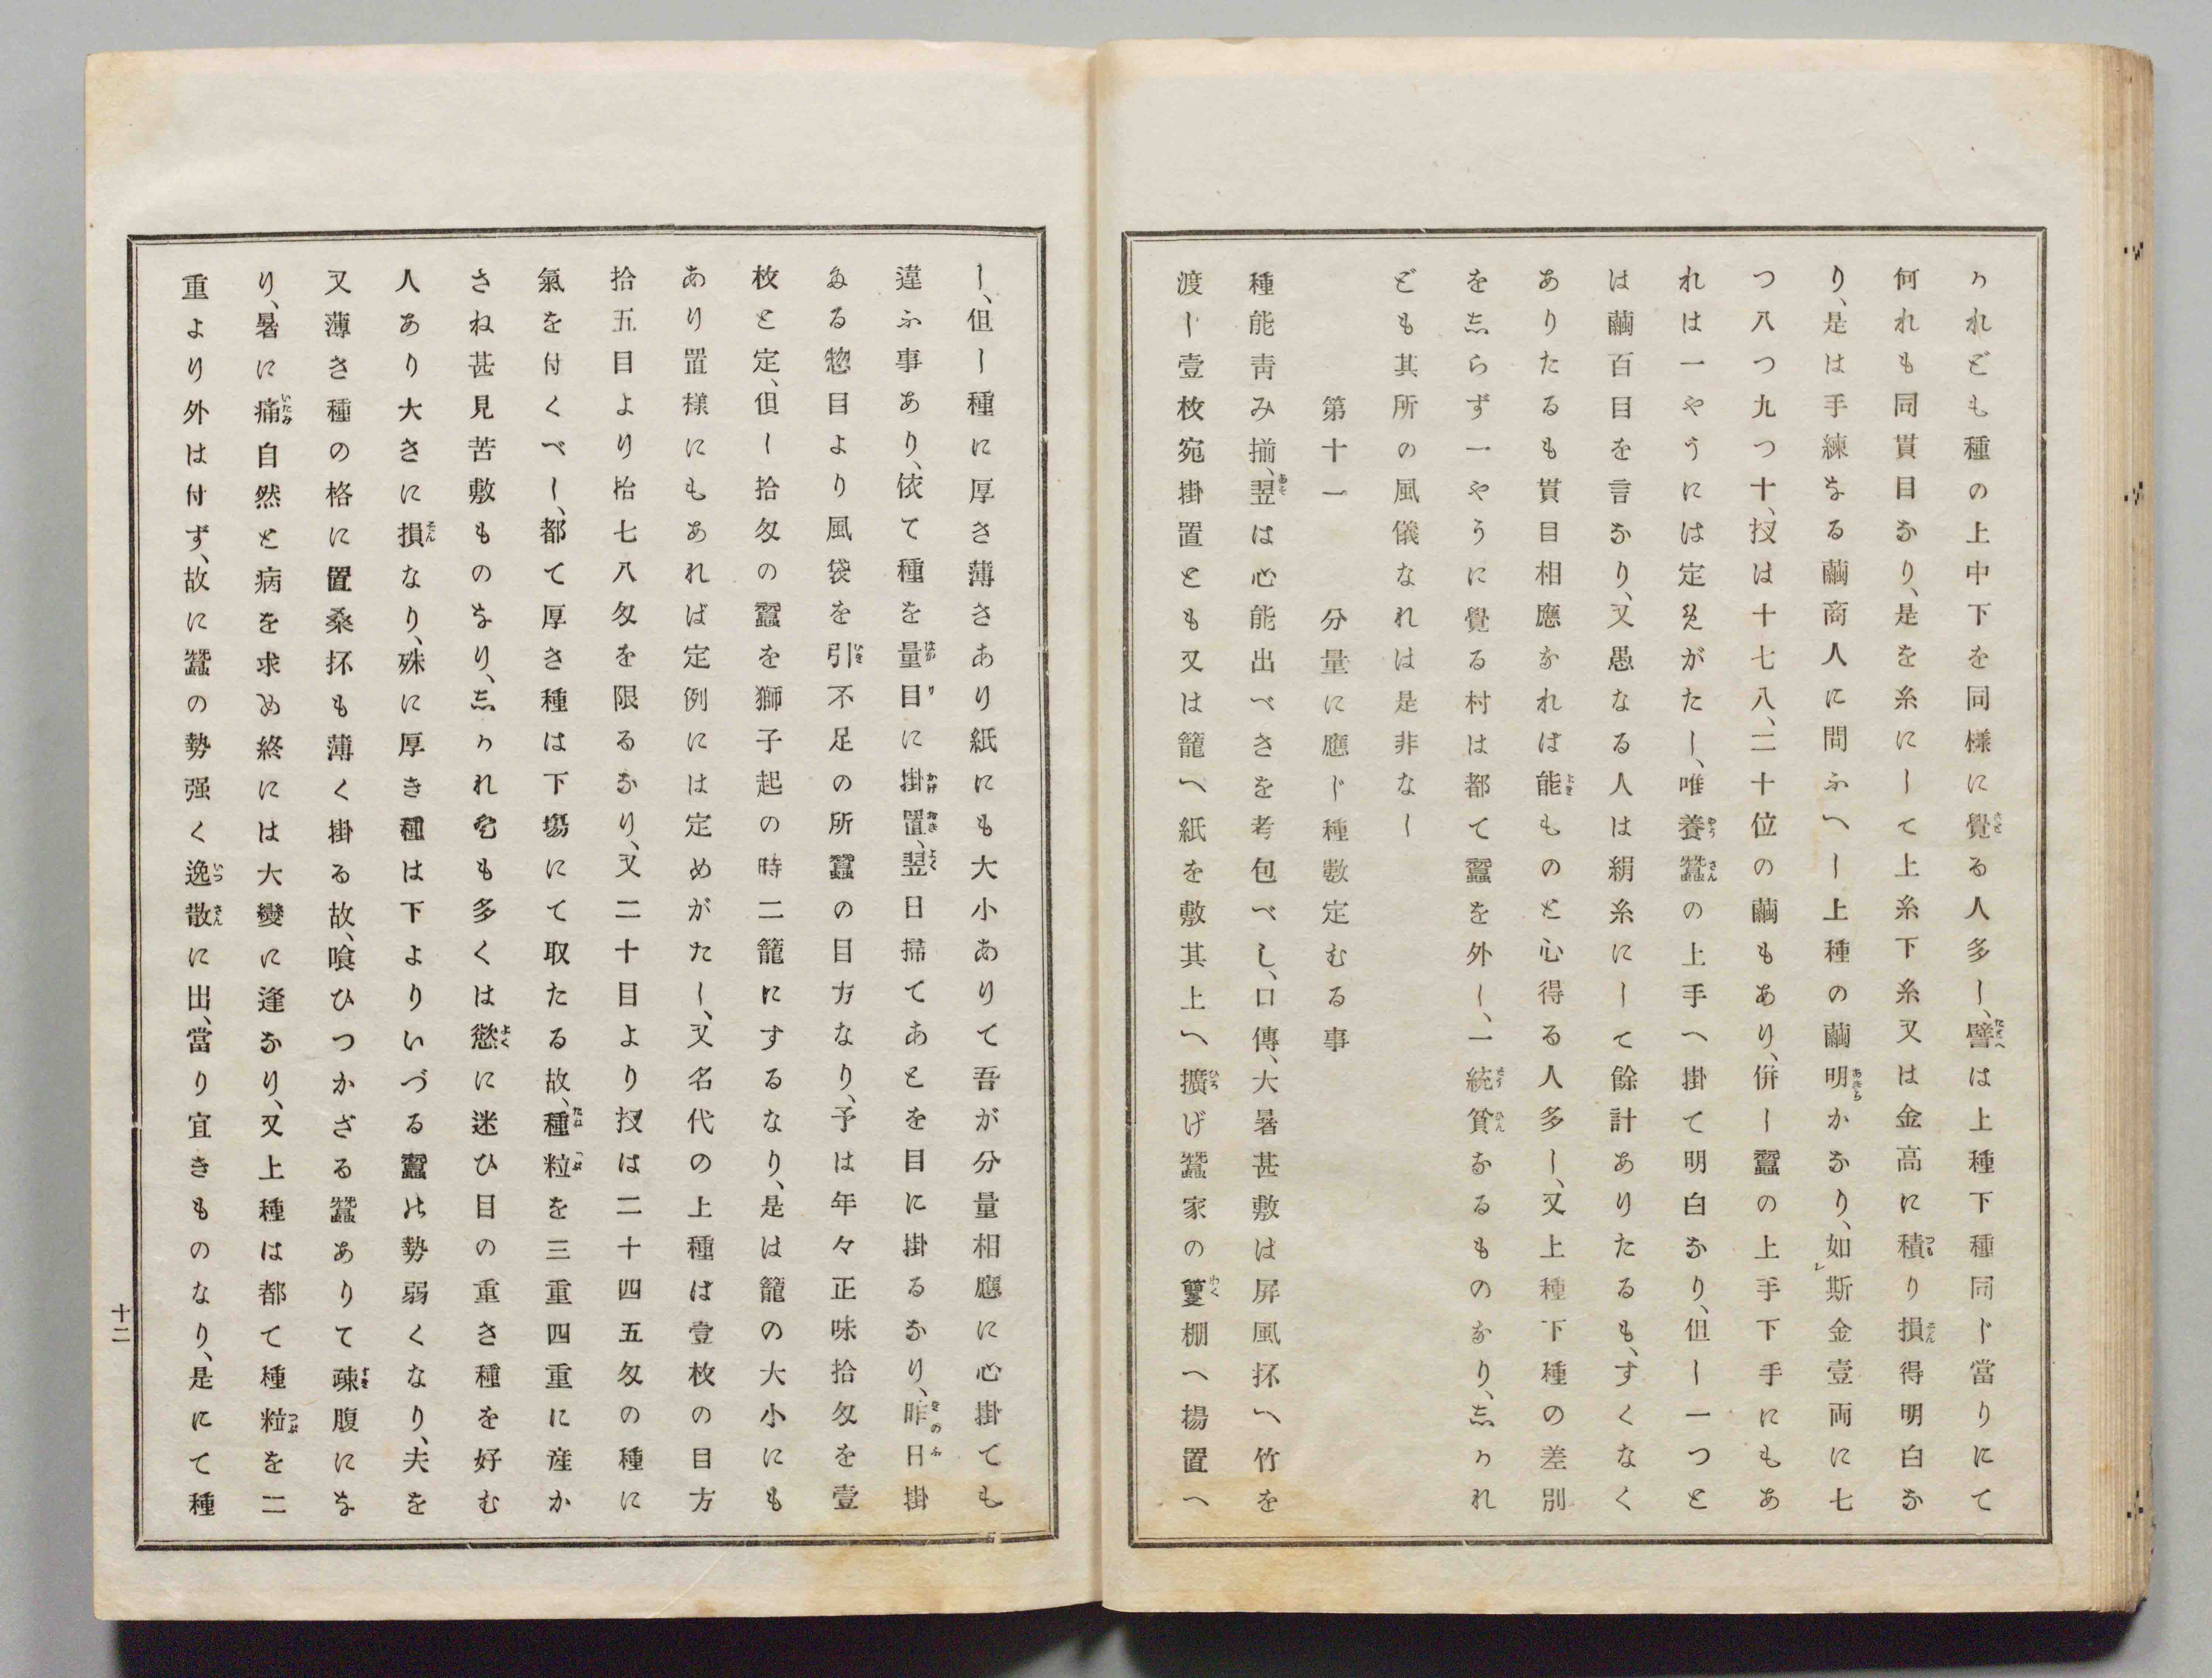 かれども種の上中下を同樣に覺る人多し、譬は上種下種同じ當りにて
何れも同貫目なり、是を糸にして上糸下糸又は金高に積り損得明白な
り、是は手練なる繭商人に問ふへし上種の繭明かなり、如斯金壹両に七
つ八つ九つ十、扠は十七八、二十位の繭もあり、併し蠶の上手下手にもあ
れは一やうには定めがたし、唯養蠶の上手へ掛て明白なり、但し一つと
は繭百目を言なり、又愚なる人は絹糸にして餘計ありたるも、すくなく
ありたるも貫目相應なれば能ものと心得る人多し、又上種下種の差別
を志らず一やうに覺る村は都て蠶を外し、一統貧なるものなり、志かれ
ども其所の風儀なれは是非なし
第十一　分量に應じ種數定むる事
種能靑み揃、翌は心能出べきを考包べし、口傳、大暑甚敷は屏風抔へ竹を
渡し壹枚宛掛置とも又は籠へ紙を敷其上へ擴げ蠶家の籆棚へ揚置へ
し、但し種に厚き薄きあり紙にも大小ありて吾が分量相應に心掛ても
違ふ事あり、依て種を量目に掛置、翌日掃てあとを目に掛るなり、昨日掛
たる惣目より風袋を引不足の所蠶の目方なり、予は年々正味拾匁を壹
枚と定、但し拾匁の蠶を獅子起の時二籠にするなり、是は籠の大小にも
あり置樣にもあれば定例には定めがたし、又名代の上種は壹枚の目方
拾五目より拾七八匁を限るなり、又二十目より扠は二十四五匁の種に
氣を付くべし、都て厚き種は下塲にて取たる故、種粒を三重四重に産か
さね甚見苦敷ものなり、志かれ共も多くは慾に迷ひ目の重き種を好む
人あり大きに損なり、殊に厚き種は下よりいづる蠶は勢弱くなり、夫を
又薄き種の格に置桑抔も薄く掛る故、喰ひつかざる蠶ありて疎腹にな
り、暑に痛自然と病を求め終には大變に逢なり、又上種は都て種粒を二
重より外は付ず、故に蠶の勢强く逸散に出、當り宜きものなり、是にて種
十二